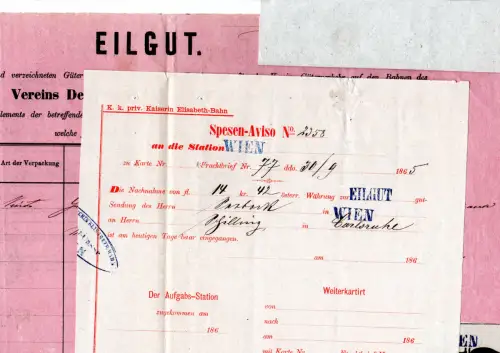 EILGUT.
d verzeichneten Güter
Vereins De
lemente der betreffende
welche
Art der Verpackung
K. k. priv. Kaiserin Elisabeth-Bahn
Spesen-Aviso No. 2353
an die Station WIEN
zu Karte Nr. Frachtbrief Nr. 77 ddo. 30/9 1865
Die Nachnahme von fl. 14 kr. 42 österr. Währung zur EILGUT gut-
Sendung des Herrn in WIEN
an Herrn Schilling in Carlsruhe
ist am heutigen Tage hier eingegangen.
am 186
Der Aufgabs-Station
zugekommen am
186
Weiterkartirt
von
nach
am 186
mit Karte Nr.
EN